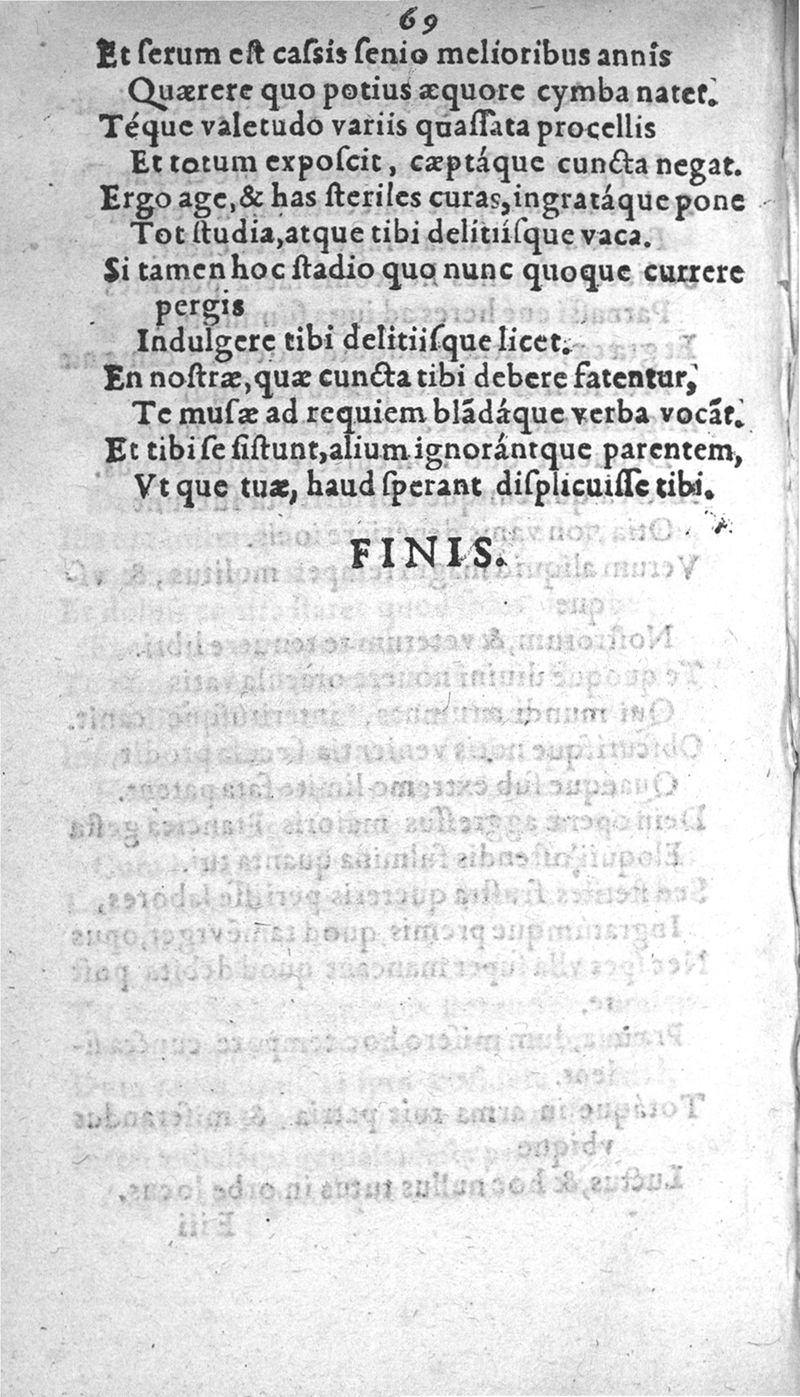 69
Et ſerum eſt caſsis ſenio melioribus annis
Quærere quo potius æquore cymba natet.
Téque valetudo variis quaſſata procellis
Et totum expoſcit, cæptáque cuncta negat.
Ergo age, & has ſteriles curas, ingratáque pone
Tot ſtudia, atque tibi delitiiſque vaca.
Si tamen hoc ſtadio quo nunc quoque currere
pergis
Indulgere tibi delitiiſque licet.
En noſtræ, quæ cuncta tibi debere fatentur,
Te muſæ ad requiem blãdáque verba vocãt.
Et tibi ſe ſiſtunt, alium ignorántque parentem,
Vt que tuæ, haud ſperant diſplicuiſſe tibi.
FINIS.